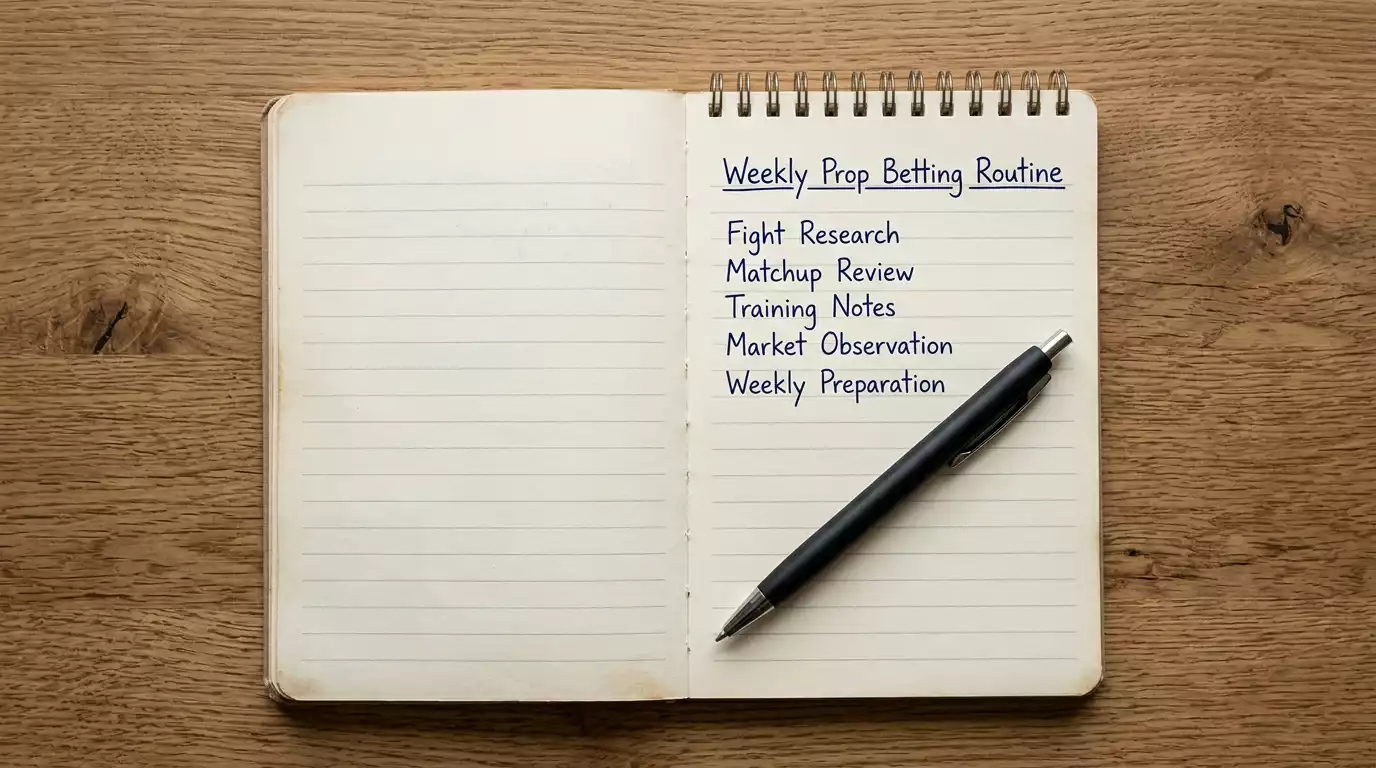 Weekly Prop Betting Routine
Fight Research
Matchup Review
Training Notes
Market Observation
Weekly Preparation